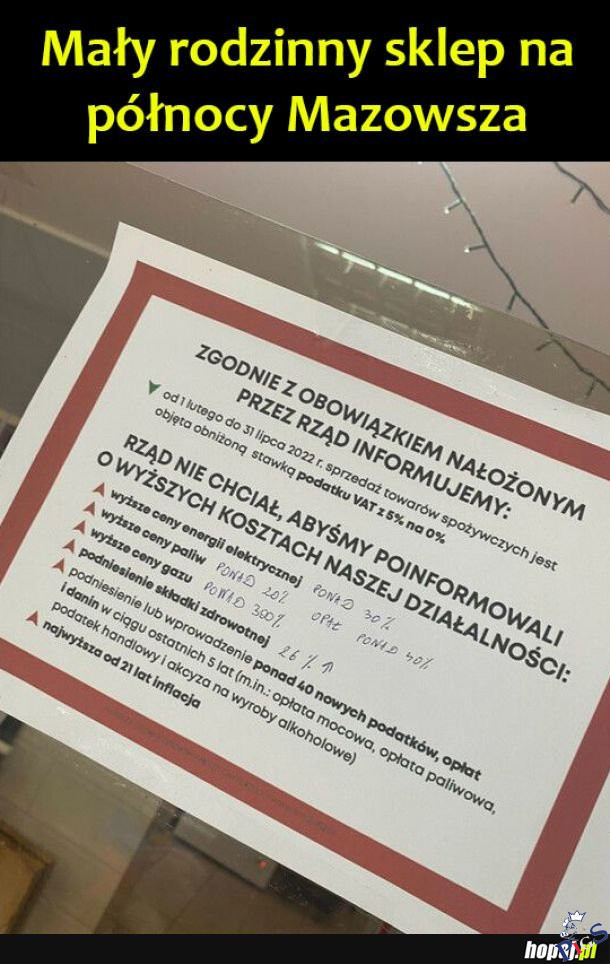 Mały rodzinny sklep na
północy Mazowsza
ZGODNIE Z OBOWIĄZKIEM NAŁOŻONYM
PRZEZ RZĄD INFORMUJEMY:
od 1 lutego do 31 lipca 2022 r. sprzedaż towarów spożywczych jest
objęta obniżoną stawką podatku VAT z 5% na 0%
RZĄD NIE CHCIAŁ, ABYŚMY POINFORMOWALI
O WYŻSZYCH KOSZTACH NASZEJ DZIAŁALNOŚCI:
wyższe ceny energii elektrycznej PONAD 30%
wyższe ceny paliw PONAD 20% OPAŁ PONAD 40%
wyższe ceny gazu PONAD 300%
podniesienie składki zdrowotnej 26% ↑
podniesienie lub wprowadzenie ponad 40 nowych podatków, opłat
i danin w ciągu ostatnich 5 lat (m.in.: opłata mocowa, opłata paliwowa,
podatek handlowy i akcyza na wyroby alkoholowe)
najwyższa od 21 lat inflacja
hopaj.pl